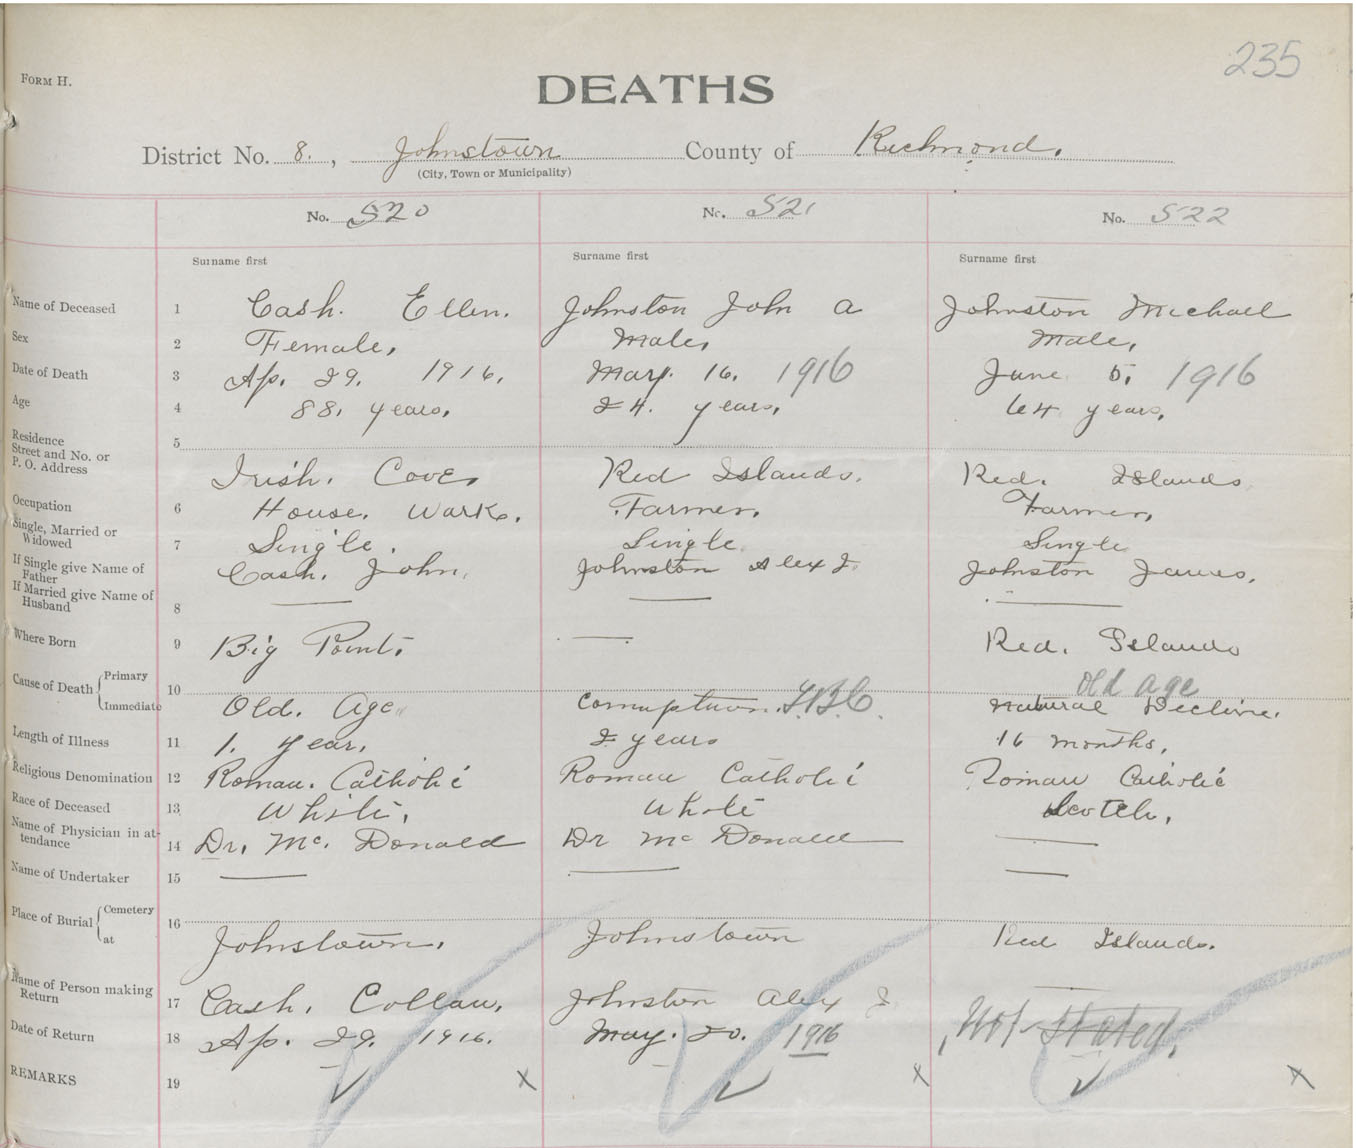 235
FORM H.
DEATHS
District No. 8. , Johnstown County of Richmond.
(City, Town or Municipality)
No. 520 No. 521 No. 522
Surname first Surname first Surname first
Name of Deceased 1 Cash. Ellen. Johnston John A Johnston Michael
Sex 2 Female, Male, Male,
Date of Death 3 Ap. 29. 1916. May. 16. 1916 June 5. 1916
Age 4 88. years. 24. years. 64 years.
Residence
Street and No. or
P. O. Address 5 Irish. Cove. Red Islands. Red. Islands
Occupation 6 House. Work. Farmer. Farmer.
Single, Married or
Widowed 7 Single. Single Single
If Single give Name of
Father Cash. John. Johnston Alex J. Johnston James.
If Married give Name of
Husband 8
Where Born 9 Big Point. Red. Islands
Cause of Death { Primary 10 Old Age
Immediate Old. Age T.B.C. Natural Decline.
Length of Illness 11 1. year. 2 years 16 months.
Religious Denomination 12 Roman. Catholic Roman Catholic Roman Catholic
Race of Deceased 13 White. White Scotch.
Name of Physician in at-
tendance 14 Dr. Mc. Donald Dr Mc Donald
Name of Undertaker 15
Place of Burial { Cemetery 16
at Johnstown. Johnstown Red Islands.
Name of Person making
Return 17 Cash. Johnston Alex J
Date of Return 18 Ap. 29. 1916. May. 20. 1916 Not Stated.
REMARKS 19 ✓ x ✓ x ✓ x